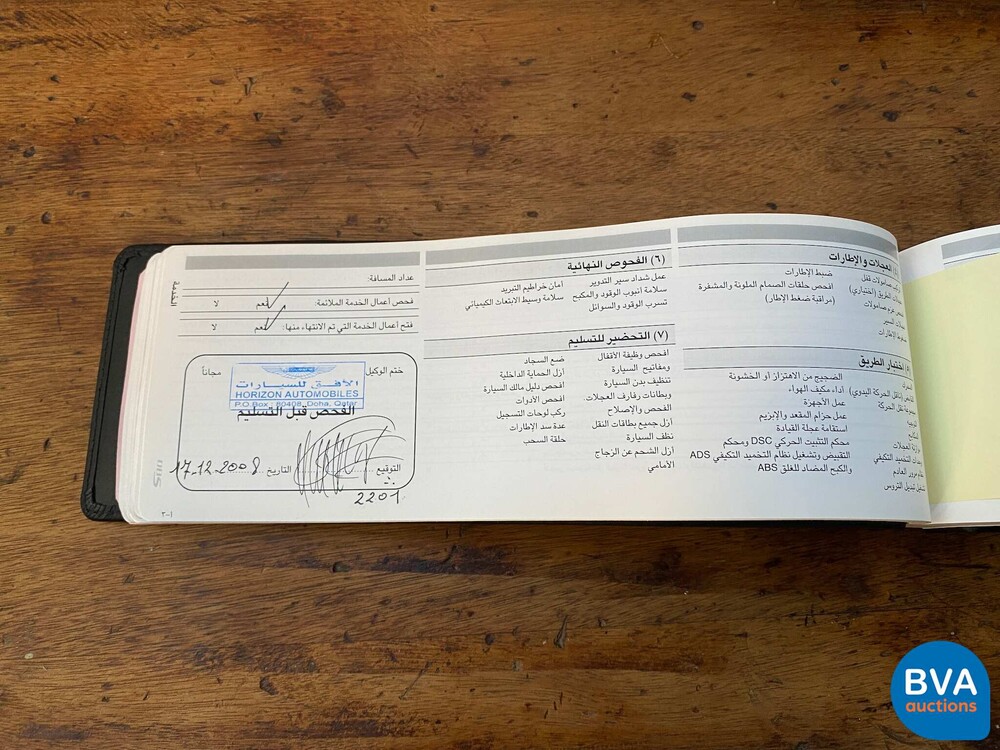 العجلات والإطارات
ضبط الإطارات
افحص حلقات الصمام الملونة والمشفرة
(مراقبة ضغط الإطار)
اختبار الطريق
الضجيج من الاهتزاز او الخشونة
أداء مكيف الهواء
عمل الأجهزة
عمل حزام المقعد والإبزيم
استقامة عجلة القيادة
محكم التثبيت الحركي DSC ومحكم
التقبيض وتشغيل نظام التخميد التكيفي ADS
والكبح المضاد للغلق ABS
(٦) الفحوص النهائية
عمل شداد سير التدوير
سلامة أنبوب الوقود والمكبح
تسرب الوقود والسوائل
أمان خراطيم التبريد
سلامة وسيط الابتعاث الكيميائي
(٧) التحضير للتسليم
افحص وظيفة الأقفال
ومفاتيح السيارة
تنظيف بدن السيارة
وبطانات رفارف العجلات
الفحص والإصلاح
أزل جميع بطاقات النقل
نظف السيارة
أزل الشحم عن الزجاج
الأمامي
ضع السجاد
أزل الحماية الداخلية
افحص دليل مالك السيارة
افحص الأدوات
ركب لوحات التسجيل
عدة سد الإطارات
حلقة السحب
عداد المسافة:
فحص أعمال الخدمة الملائمة: نعم لا
فتح أعمال الخدمة التي تم الانتهاء منها: نعم لا
ختم الوكيل
مجاناً
الأفق للسيارات
HORIZON AUTOMOBILES
P.O.Box : 80408, Doha, Qatar
الفحص قبل التسليم
التوقيع
التاريخ 17.12.2008
2201
الخدمة
٢-١
BVA
auctions